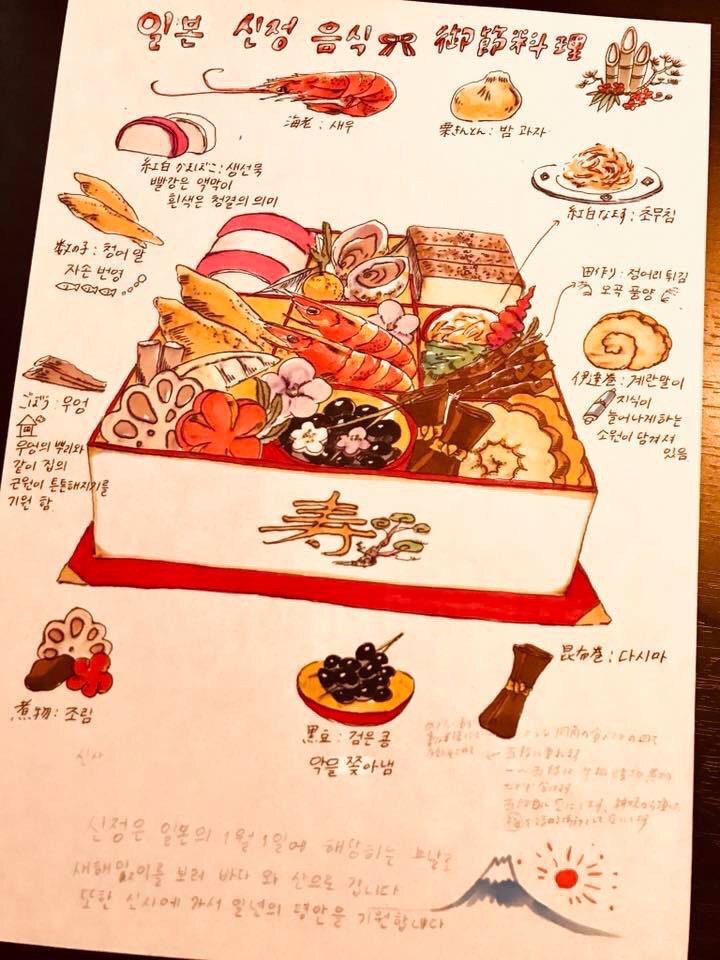 일본 신정 음식 御節料理
海老 : 새우
栗きんとん : 밤 과자
紅白かまぼこ : 생선묵
빨강은 액막이
흰색은 청결의 의미
紅白なます : 초무침
数の子 : 청어 알
자손 번영
田作り : 정어리 튀김
오곡 풍양
伊達巻 : 계란말이
지식이
늘어나게하는
소원이 담겨져
있음
ごぼう : 우엉
우엉의 뿌리와
같이 집의
근원이 튼튼해지기를
기원 함
寿
煮物 : 조림
黒豆 : 검은 콩
악을 쫓아냄
昆布巻 : 다시마
신사
신정은 일본의 1월 1일에 해당하는
새해맞이를 보러 바다 와 산으로 갑니다
또한 신사에 가서 일년의 평안을 기원합니다